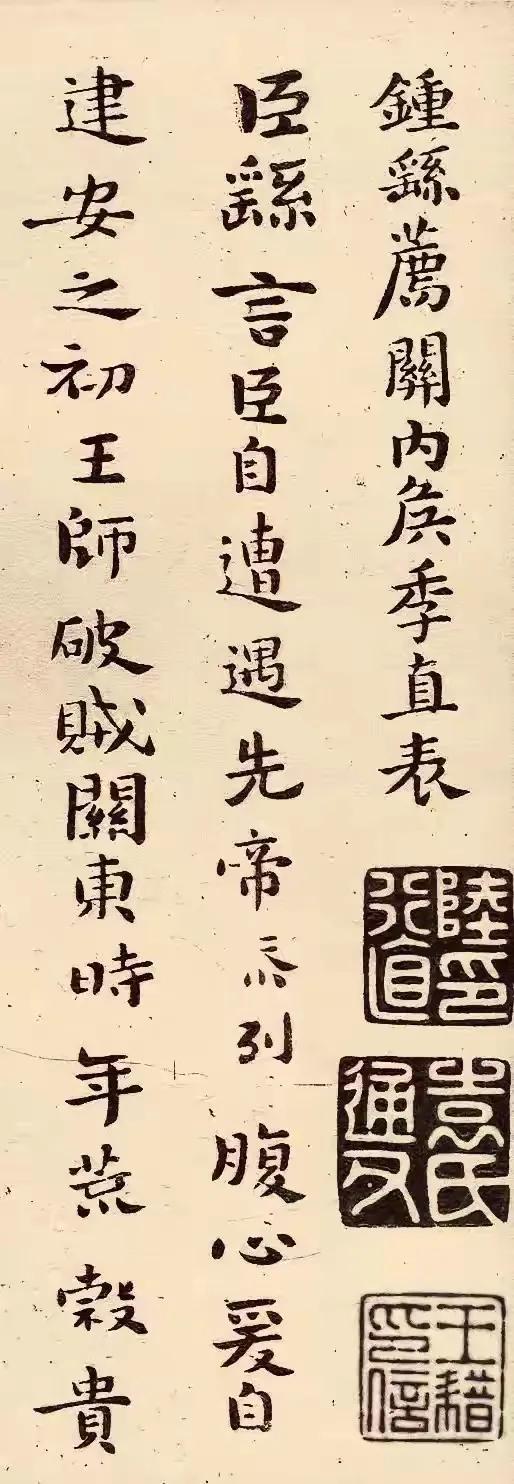 鍾繇薦關内侯季直表
陸印行直
袁氏通父
王印信
臣繇言臣自遭遇先帝忝列腹心爰自
建安之初王師破賊關東時年荒穀貴